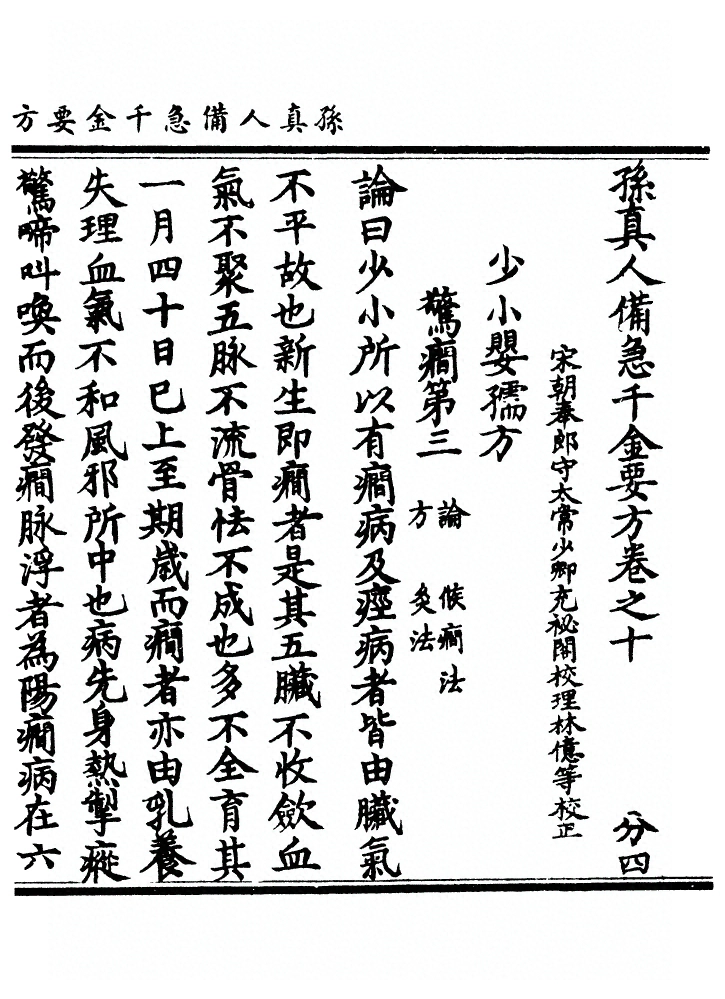 孫真人備急千金要方
孫真人備急千金要方卷之十 分四
宋朝奉郎守太常少卿充祕閣校理林億等校正
少小嬰孺方
驚癇第三 論 候癇法 方 灸法
論曰少小所以有癇病及痙病者皆由臟氣
不平故也新生即癇者是其五臟不收斂血
氣不聚五脉不流骨怯不成也多不全育其
一月四十日巳上至期歲而癇者亦由乳養
失理血氣不和風邪所中也病先身熱掣瘲
驚啼叫喚而後發癇脉浮者為陽癇病在六